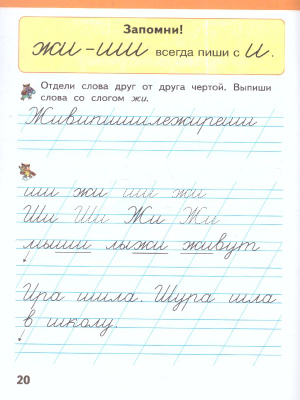 Запомни!
жи – ши всегда пиши с и.
Отдели слова друг от друга чертой. Выпиши
слова со слогом жи.
Живипишишилежиреши
ши жи ши жи
Ши Ши Жи Жи
мыши лыжи живут
Ира шила. Шура шла
в школу.
20